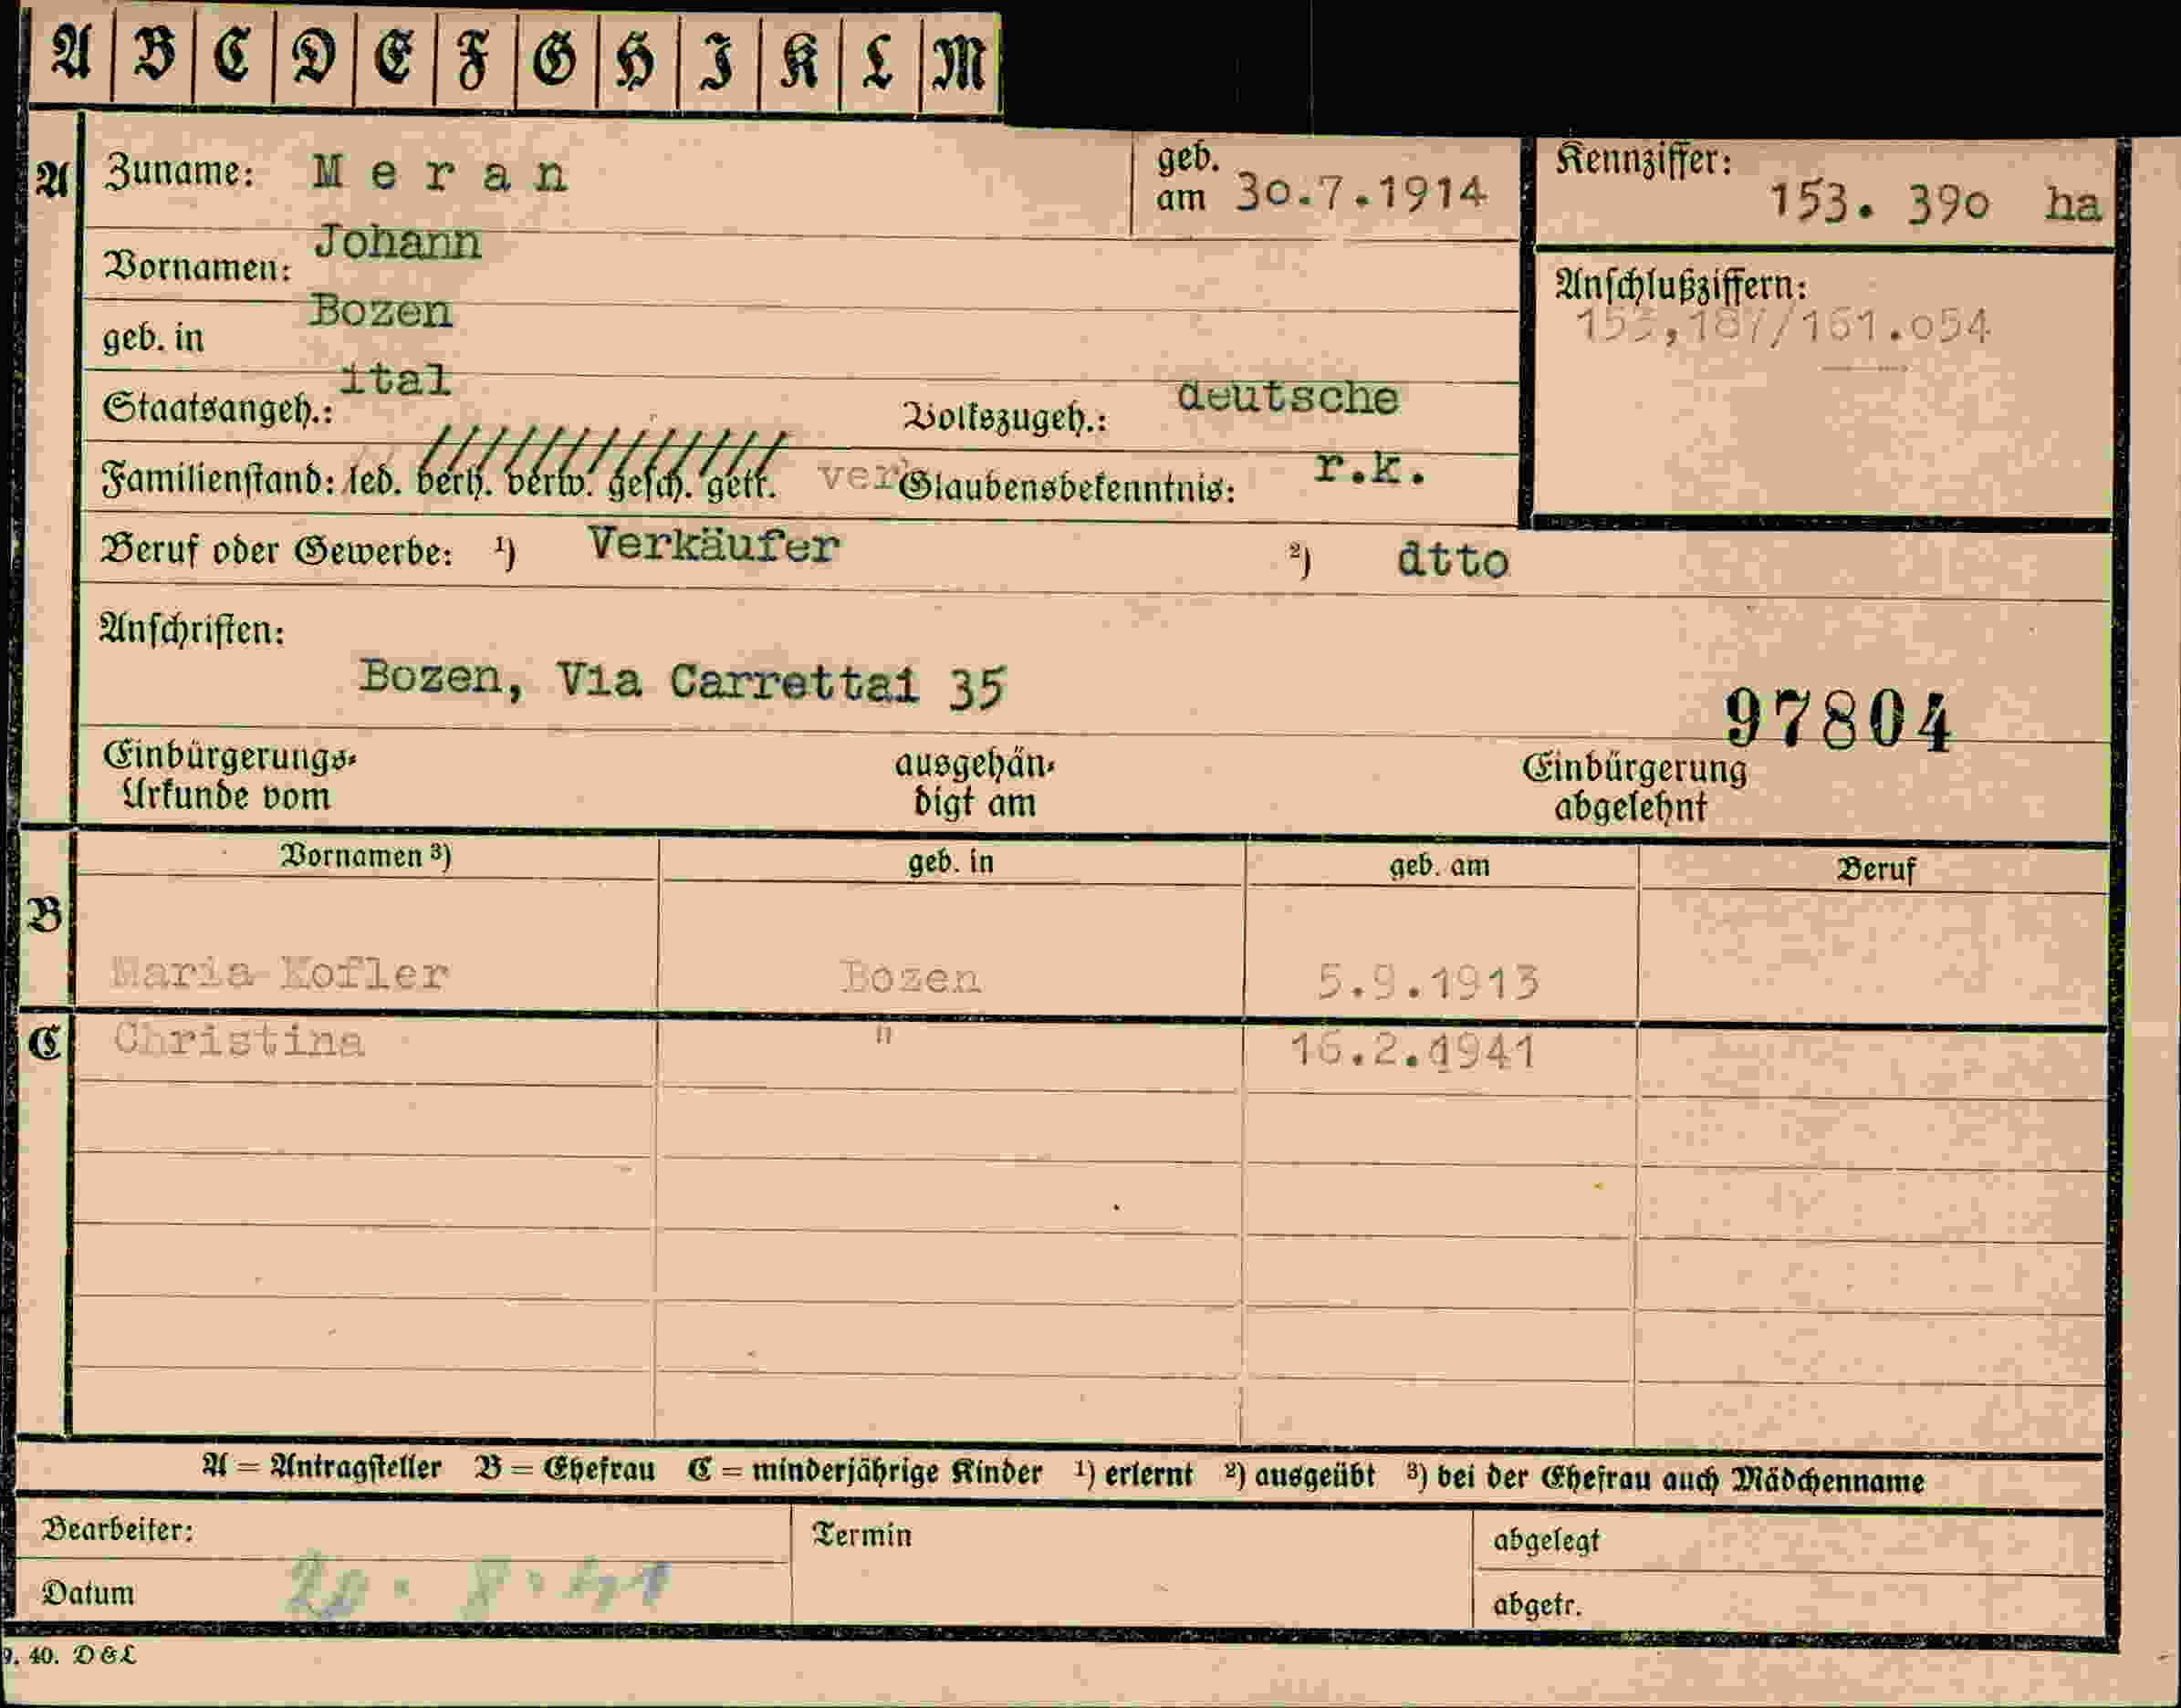 A B C D E F G H I K L M
A
Zuname: Meran
geb. am 30.7.1914
Kennziffer: 153. 390 ha
Vornamen: Johann
Anschlußziffern:
153,187/161.054
geb. in Bozen
Staatsangeh.: ital
Volkszugeh.: deutsche
Familienstand: led. verh. verw. gesch. getr. verh
Glaubensbekenntnis: r.k.
Beruf oder Gewerbe: ¹) Verkäufer ²) dtto
Anschriften:
Bozen, Via Carrettai 35
97804
Einbürgerungs-
Urkunde vom
ausgehän-
digt am
Einbürgerung
abgelehnt
Vornamen ³) geb. in geb. am Beruf
B
Maria Kofler Bozen 5.9.1913
C
Christina " 16.2.1941
A = Antragsteller B = Ehefrau C = minderjährige Kinder ¹) erlernt ²) ausgeübt ³) bei der Ehefrau auch Mädchenname
Bearbeiter:
Termin
abgelegt
Datum 20. 8. 41
abgetr.
9. 40. D & L